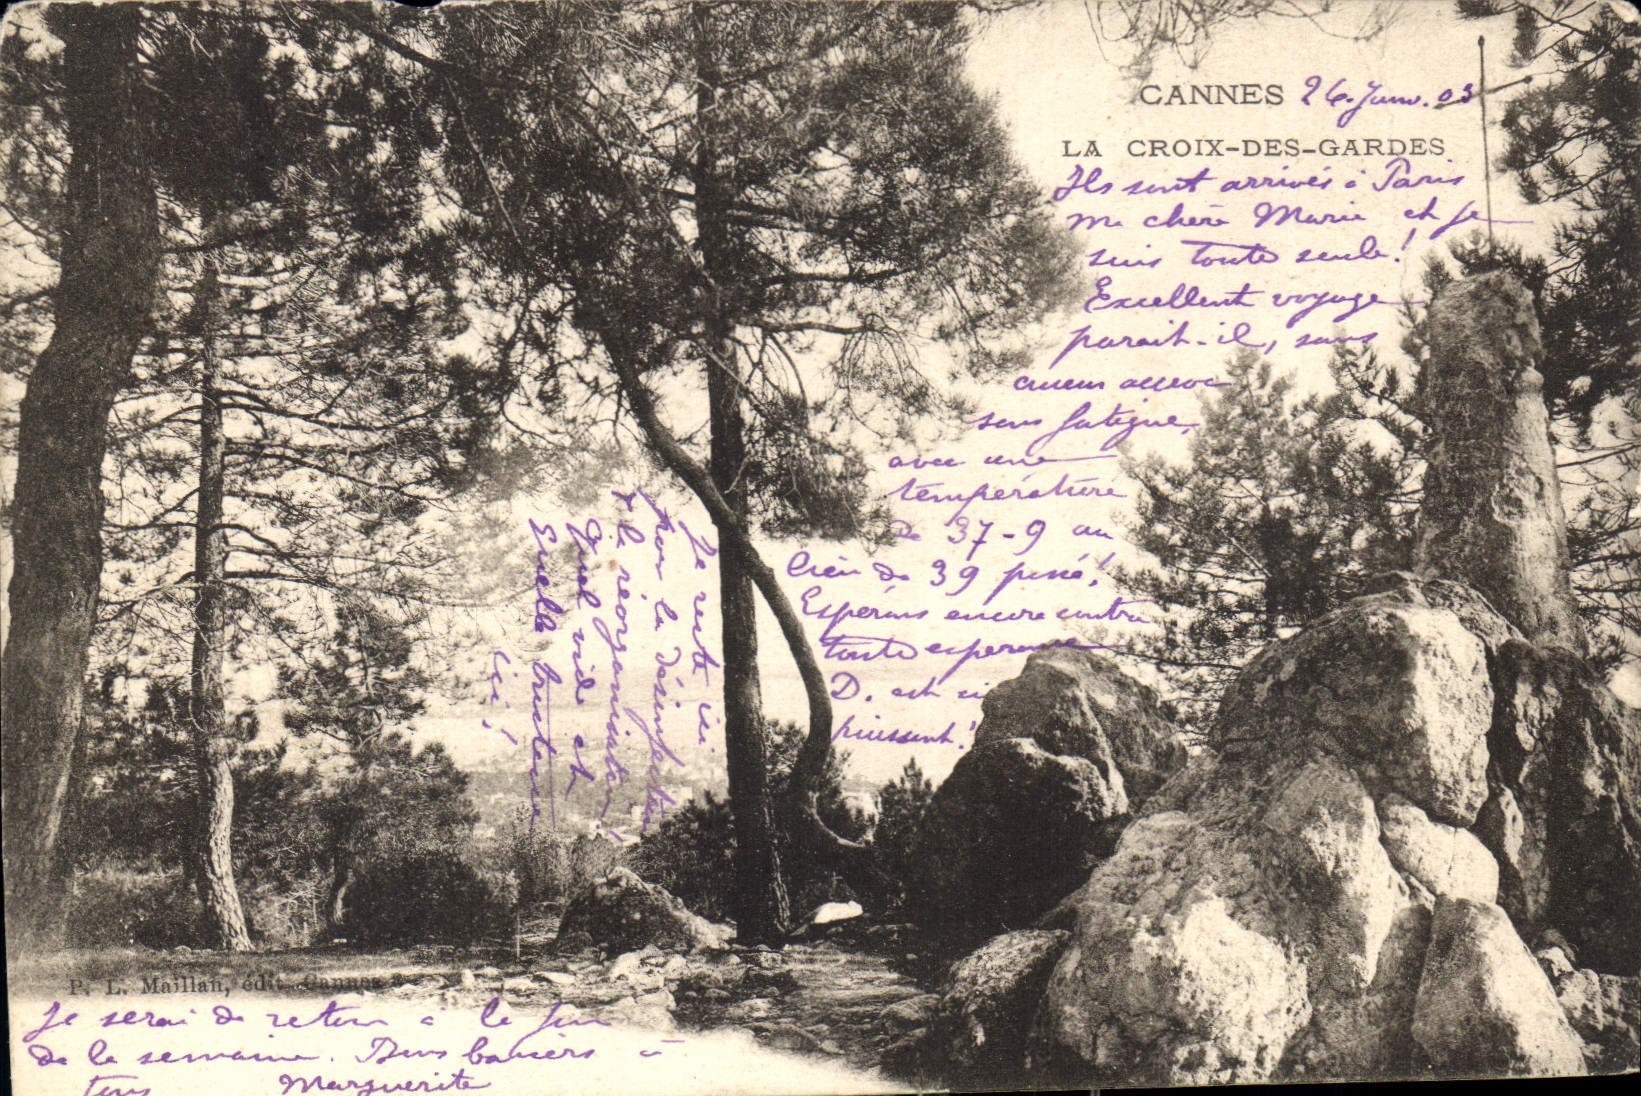 CANNES 26. Janv. 03
LA CROIX-DES-GARDES
Ils sont arrivés à Paris
ma chère Marie et je
suis toute seule!
Excellent voyage
parait-il, sans
aucun accroc
sans fatigue,
avec une
température
de 37-9 au
lieu de 39 passé!
Espérons encore contre
toute esperance
D. est si
puissant!
Je reste ici
pour la désinfection
& la réorganisation!
Quel vide et
quelle tristesse
ici!
P. L. Maillan, édit. Cannes
Je serai de retour à la fin
de la semaine. Bons baisers à
tous Marguerite